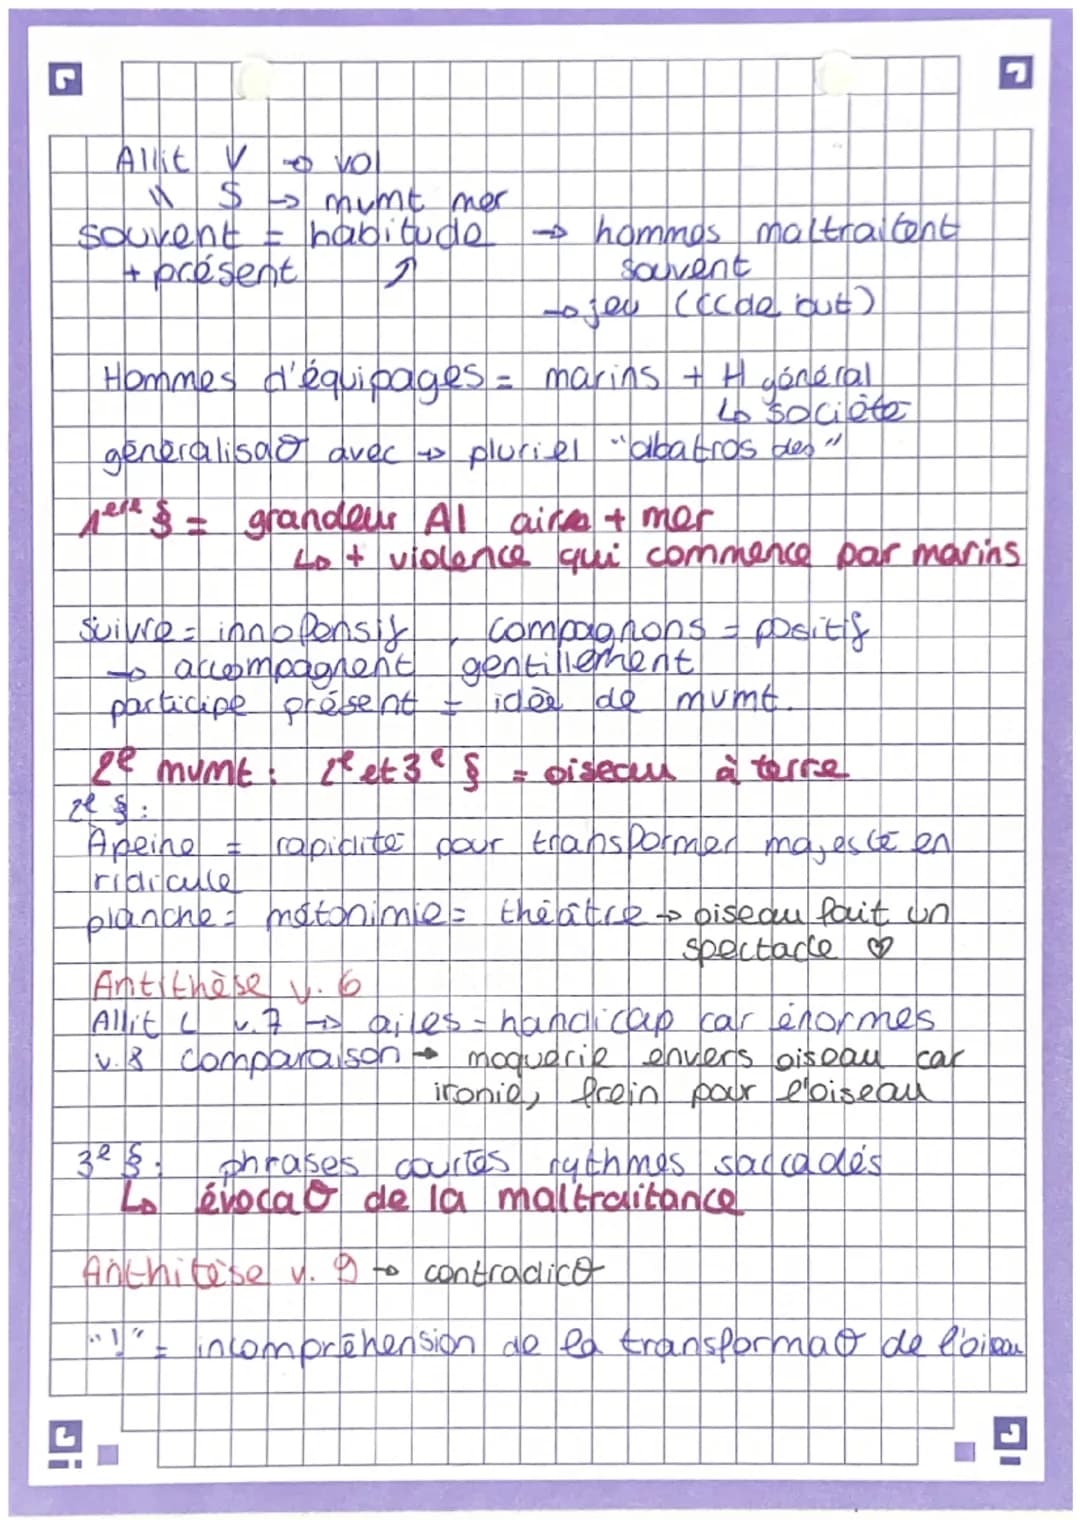 Allit V → vol
" S → mvmt mer
souvent = habitude → hommes maltraitent
+ présent ↑ souvent
→ jeu (CCde but)
Hommes d'équipages = marins + H général
↳ société
généralisaO avec → pluriel "albatros des"
1ere § = grandeur Al aire + mer
↳ + violence qui commence par marins
suivre = innofensif, compagnons = positif
→ accompagnent gentillement
participe présent = idée de mvmt.
2e mvmt : 2e et 3e § = oiseau à terre
2e § :
Àpeine = rapidité pour transformer majesté en
ridicule
planche = métonimie = théâtre → oiseau fait un
spectacle ♡
Antithèse v. 6
Allit L v.7 → ailes = handicap car énormes
v.8 comparaison → moquerie envers oiseau car
ironie, frein pour l'oiseau
3e § : phrases courtes rythmes saccadés
↳ évocaO de la maltraitance
Anthitèse v. 9 → contradicO
"!" = incompréhension de la transformaO de l'oiseau